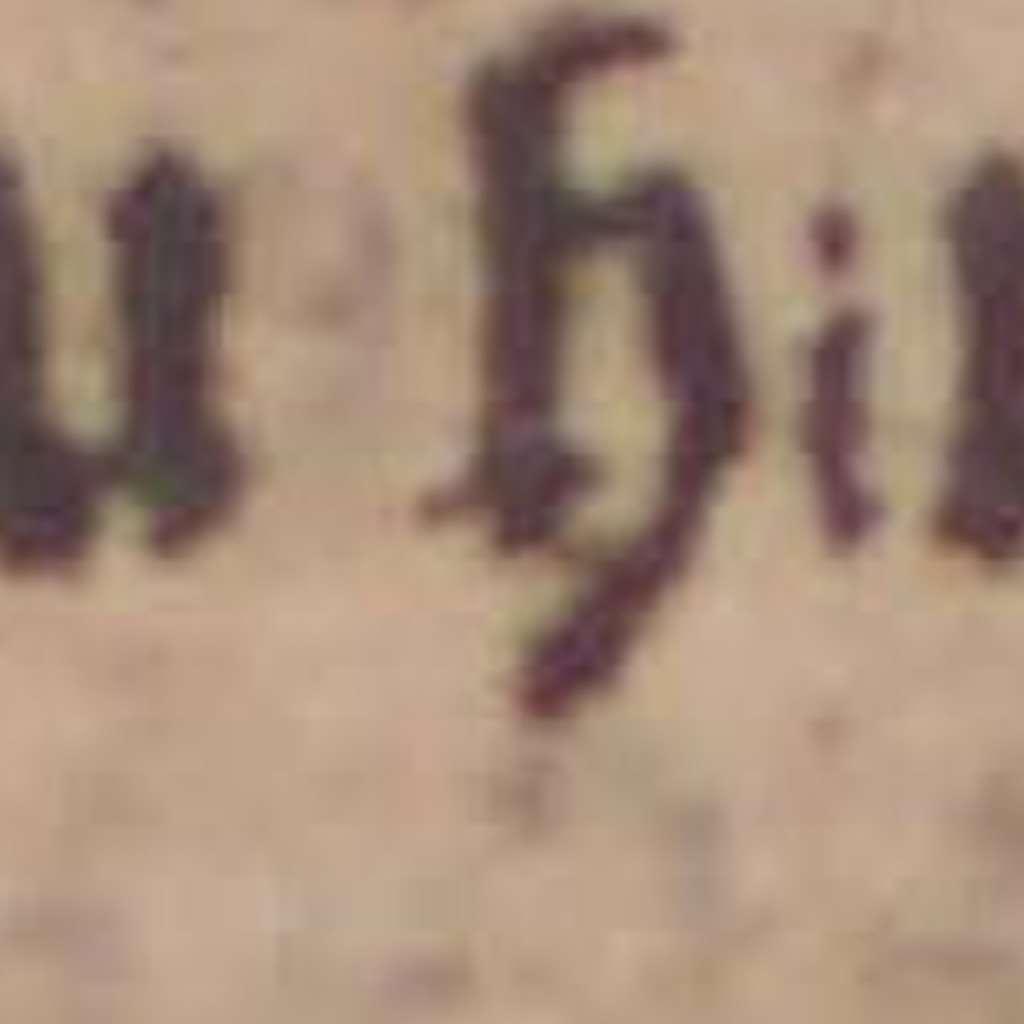 u hi